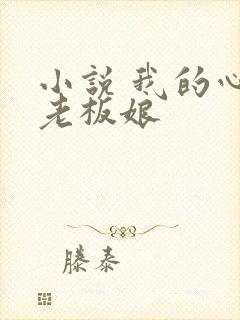 小説我的心
老板娘
滕泰